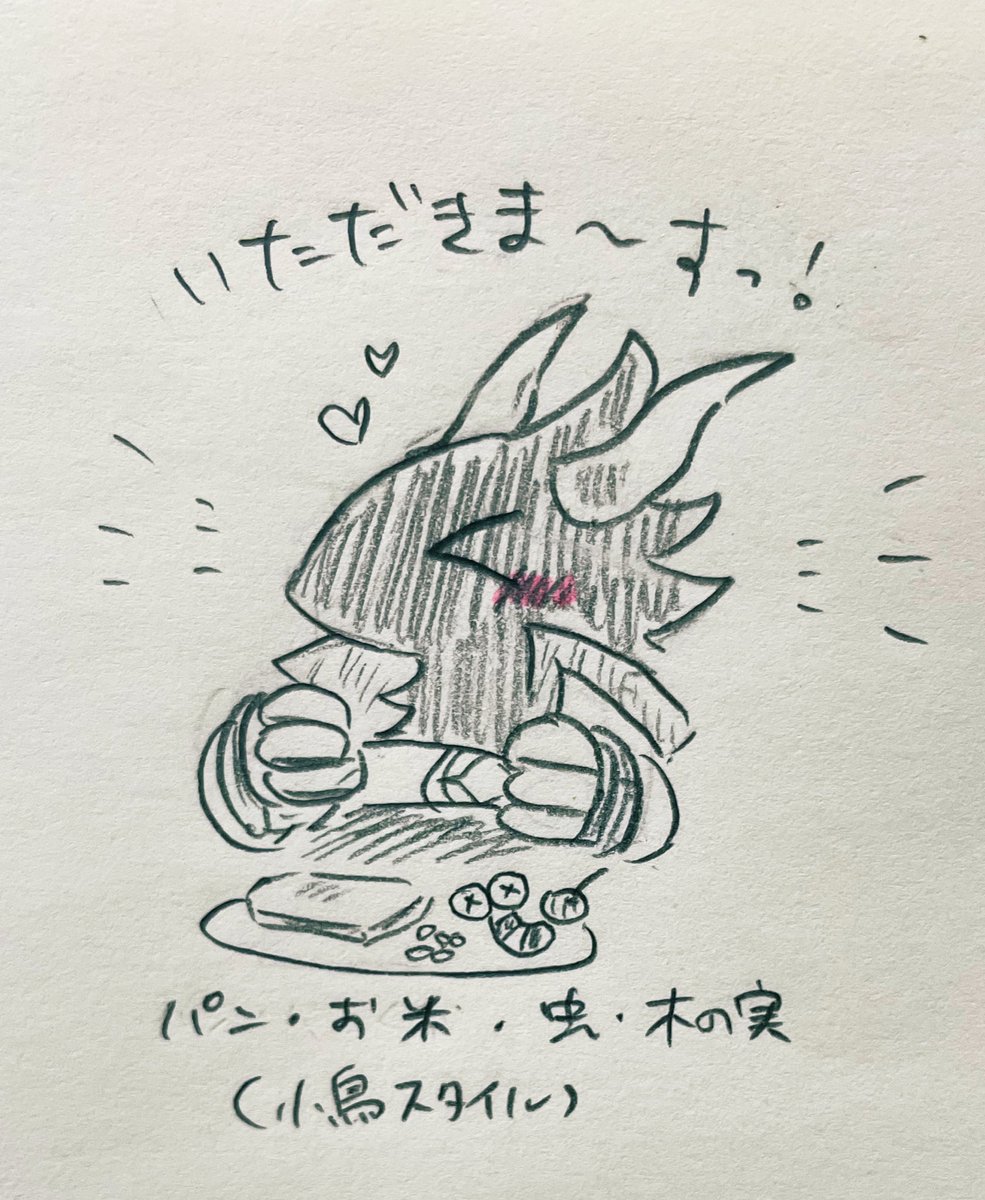 いただきま～すっ!
パン・お米・虫・木の実
(小鳥スタイル)